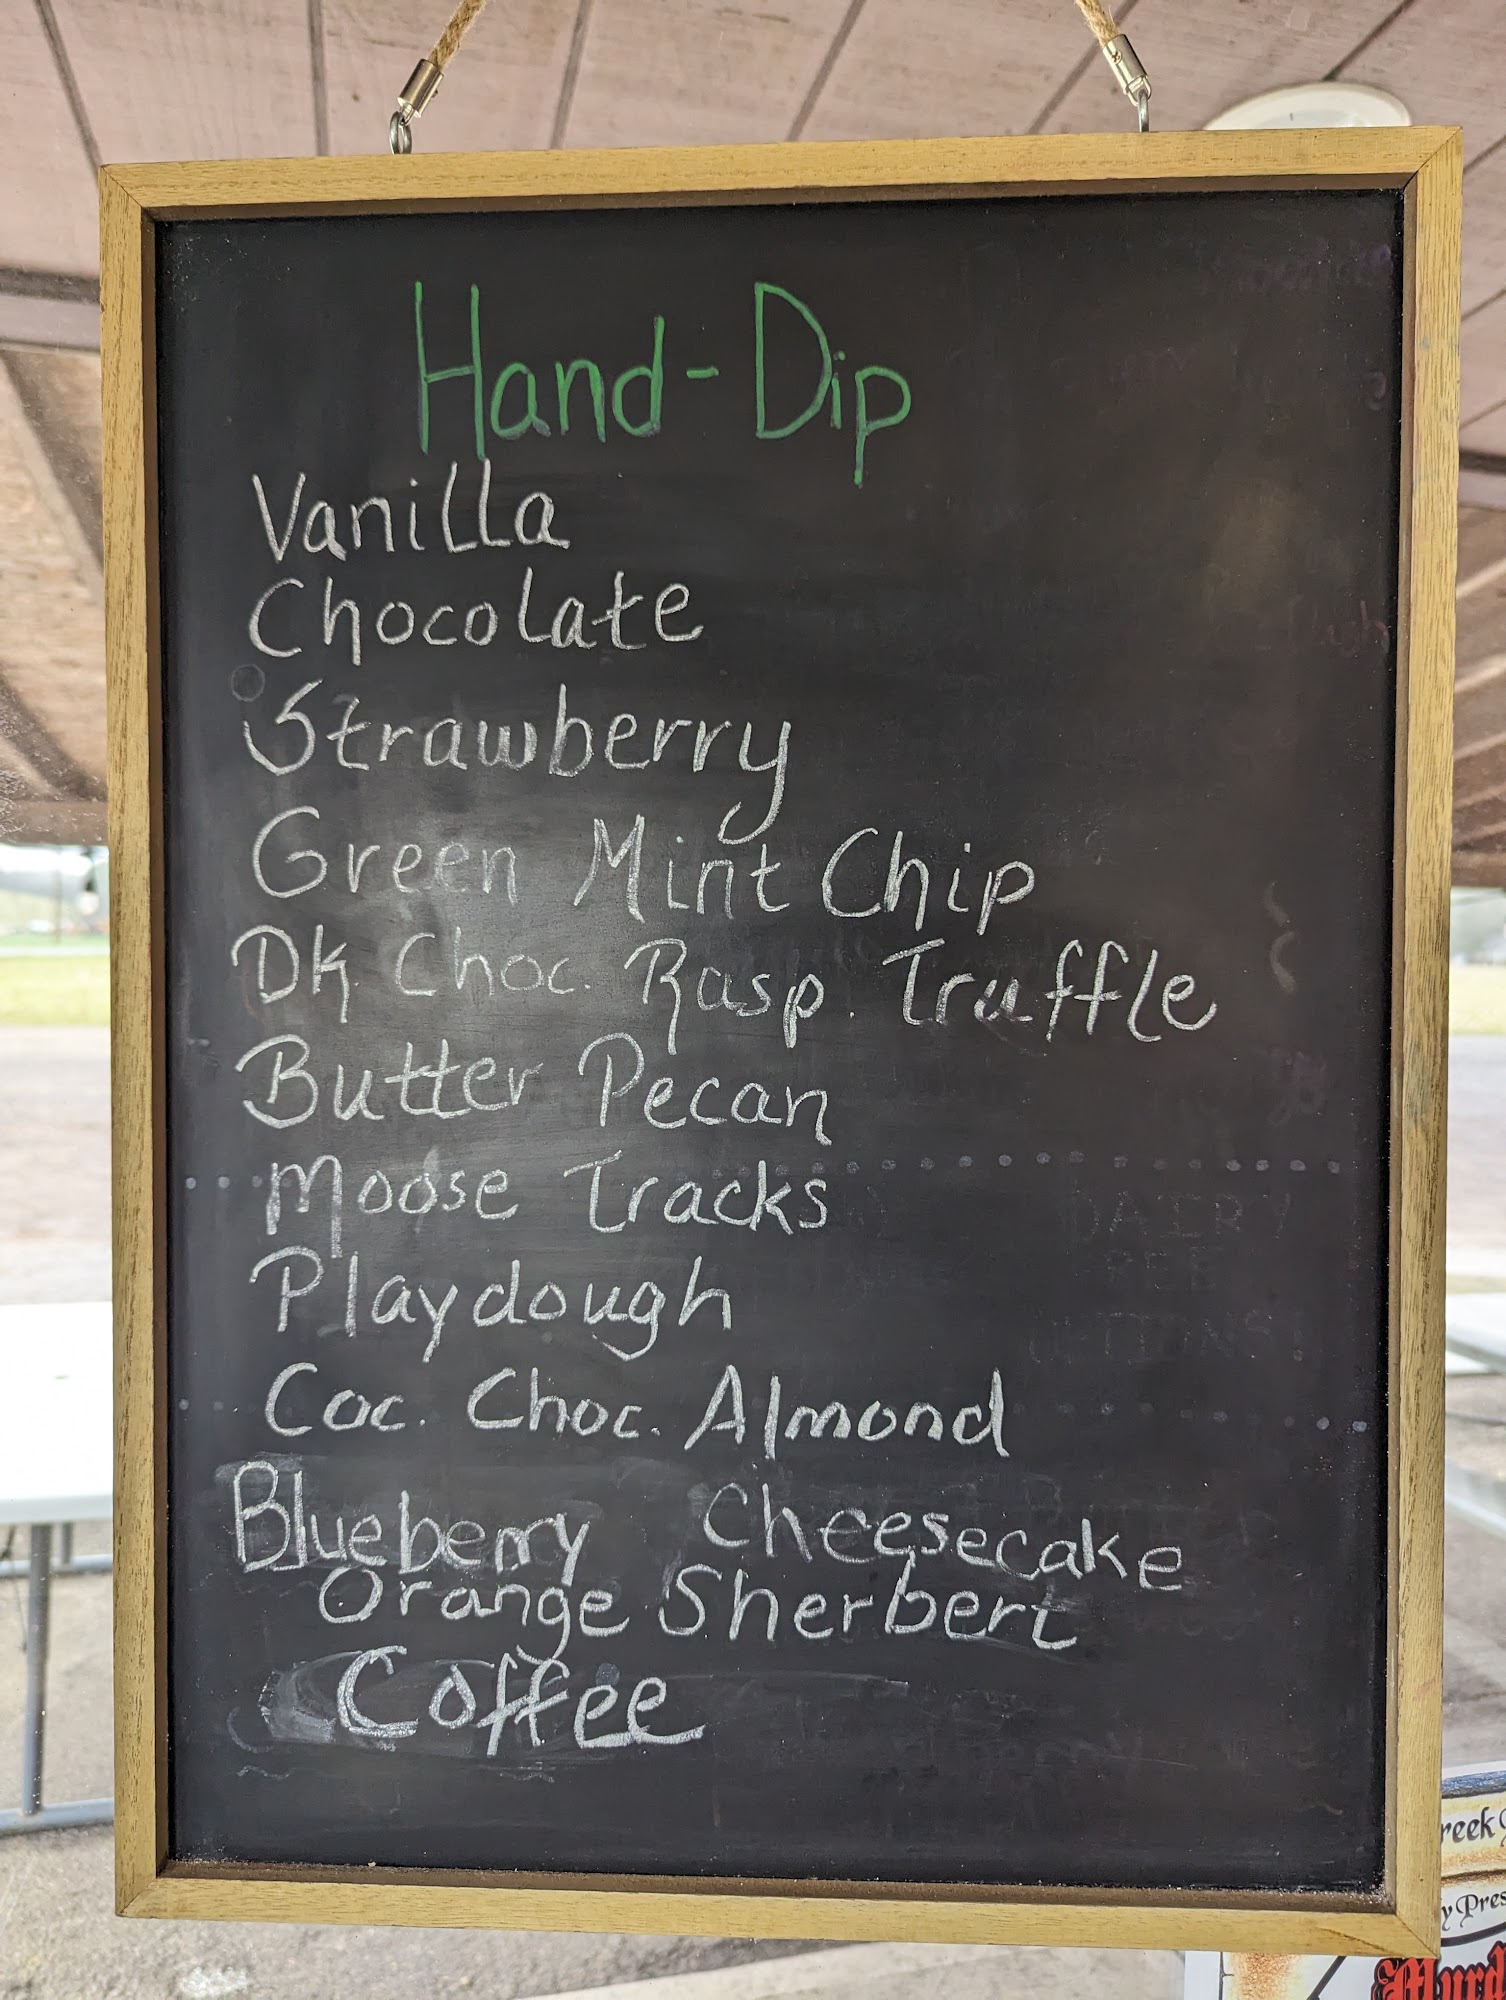 Hand-Dip
Vanilla
Chocolate
Strawberry
Green Mint Chip
DK. Choc. Rasp. Truffle
Butter Pecan
Moose Tracks
Playdough
Coc. Choc. Almond
Blueberry Cheesecake
Orange Sherbert
Coffee
DAIRY